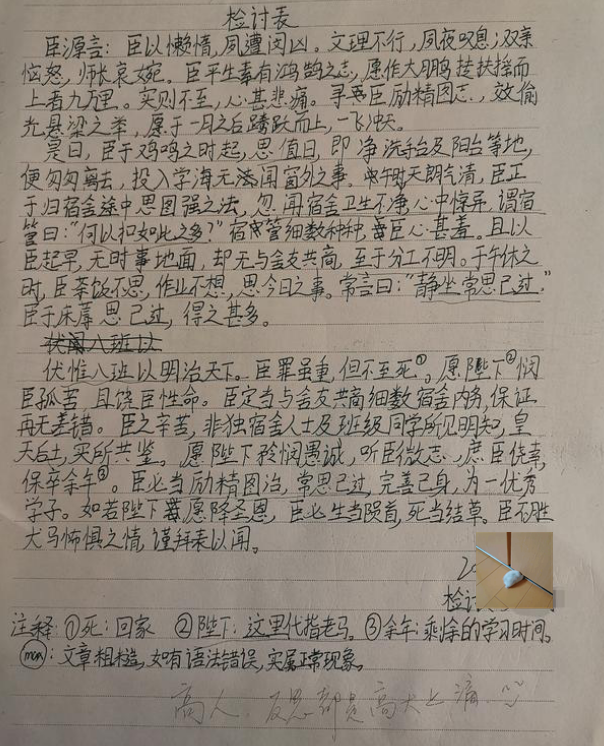 检讨表
臣源言：臣以懒惰，夙遭闵凶。文理不行，夙夜叹息；双亲
恼怒，师长哀婉。臣平生素有鸿鹄之志，愿作大鹏，扶摇而
上者九万里。实则不至，心甚悲痛。寻臣励精图志，效偷
光悬梁之举，愿于一月之后踊跃而上，一飞冲天。
是日，臣于鸡鸣之时起，思值日，即净洗手台及阳台等地，
便匆匆离去，投入学海无法闻窗外之事。中午时天朗气清，臣正
于归宿舍途中思图强之法，忽闻宿舍卫生不净，心中惊异，谓宿
管曰："何以扣如此之多？"宿管细数种种，臣心甚羞。且以
臣起早，无时事地面，却无与舍友共商，至于分工不明。于午休之
时，臣茶饭不思，作业不想，思今日之事。常言曰："静坐常思己过。"
臣于床辱思己过，得之甚多。
伏惟八班以
伏惟八班以明治天下。臣罪虽重，但不至死①。愿陛下②悯
臣孤苦，且饶臣性命。臣定当与舍友共商细数宿舍内务，保证
再无差错。臣之辛苦，非独宿舍人士及班级同学所见明知，皇
天后土，实所共鉴。愿陛下矜悯愚诚，听臣微志，庶臣侥幸，
保卒余年③。臣必当励精图治，常思己过，完善己身，为一优秀
学子。如若陛下愿降圣恩，臣必生当陨首，死当结草。臣不胜
犬马怖惧之情，谨拜表以闻。
20
检讨
注释：①死：回家 ②陛下：这里代指老马。③余年：剩余的学习时间。
man：文章粗糙，如有语法错误，实属正常现象。
高人，反思都是高大上滴